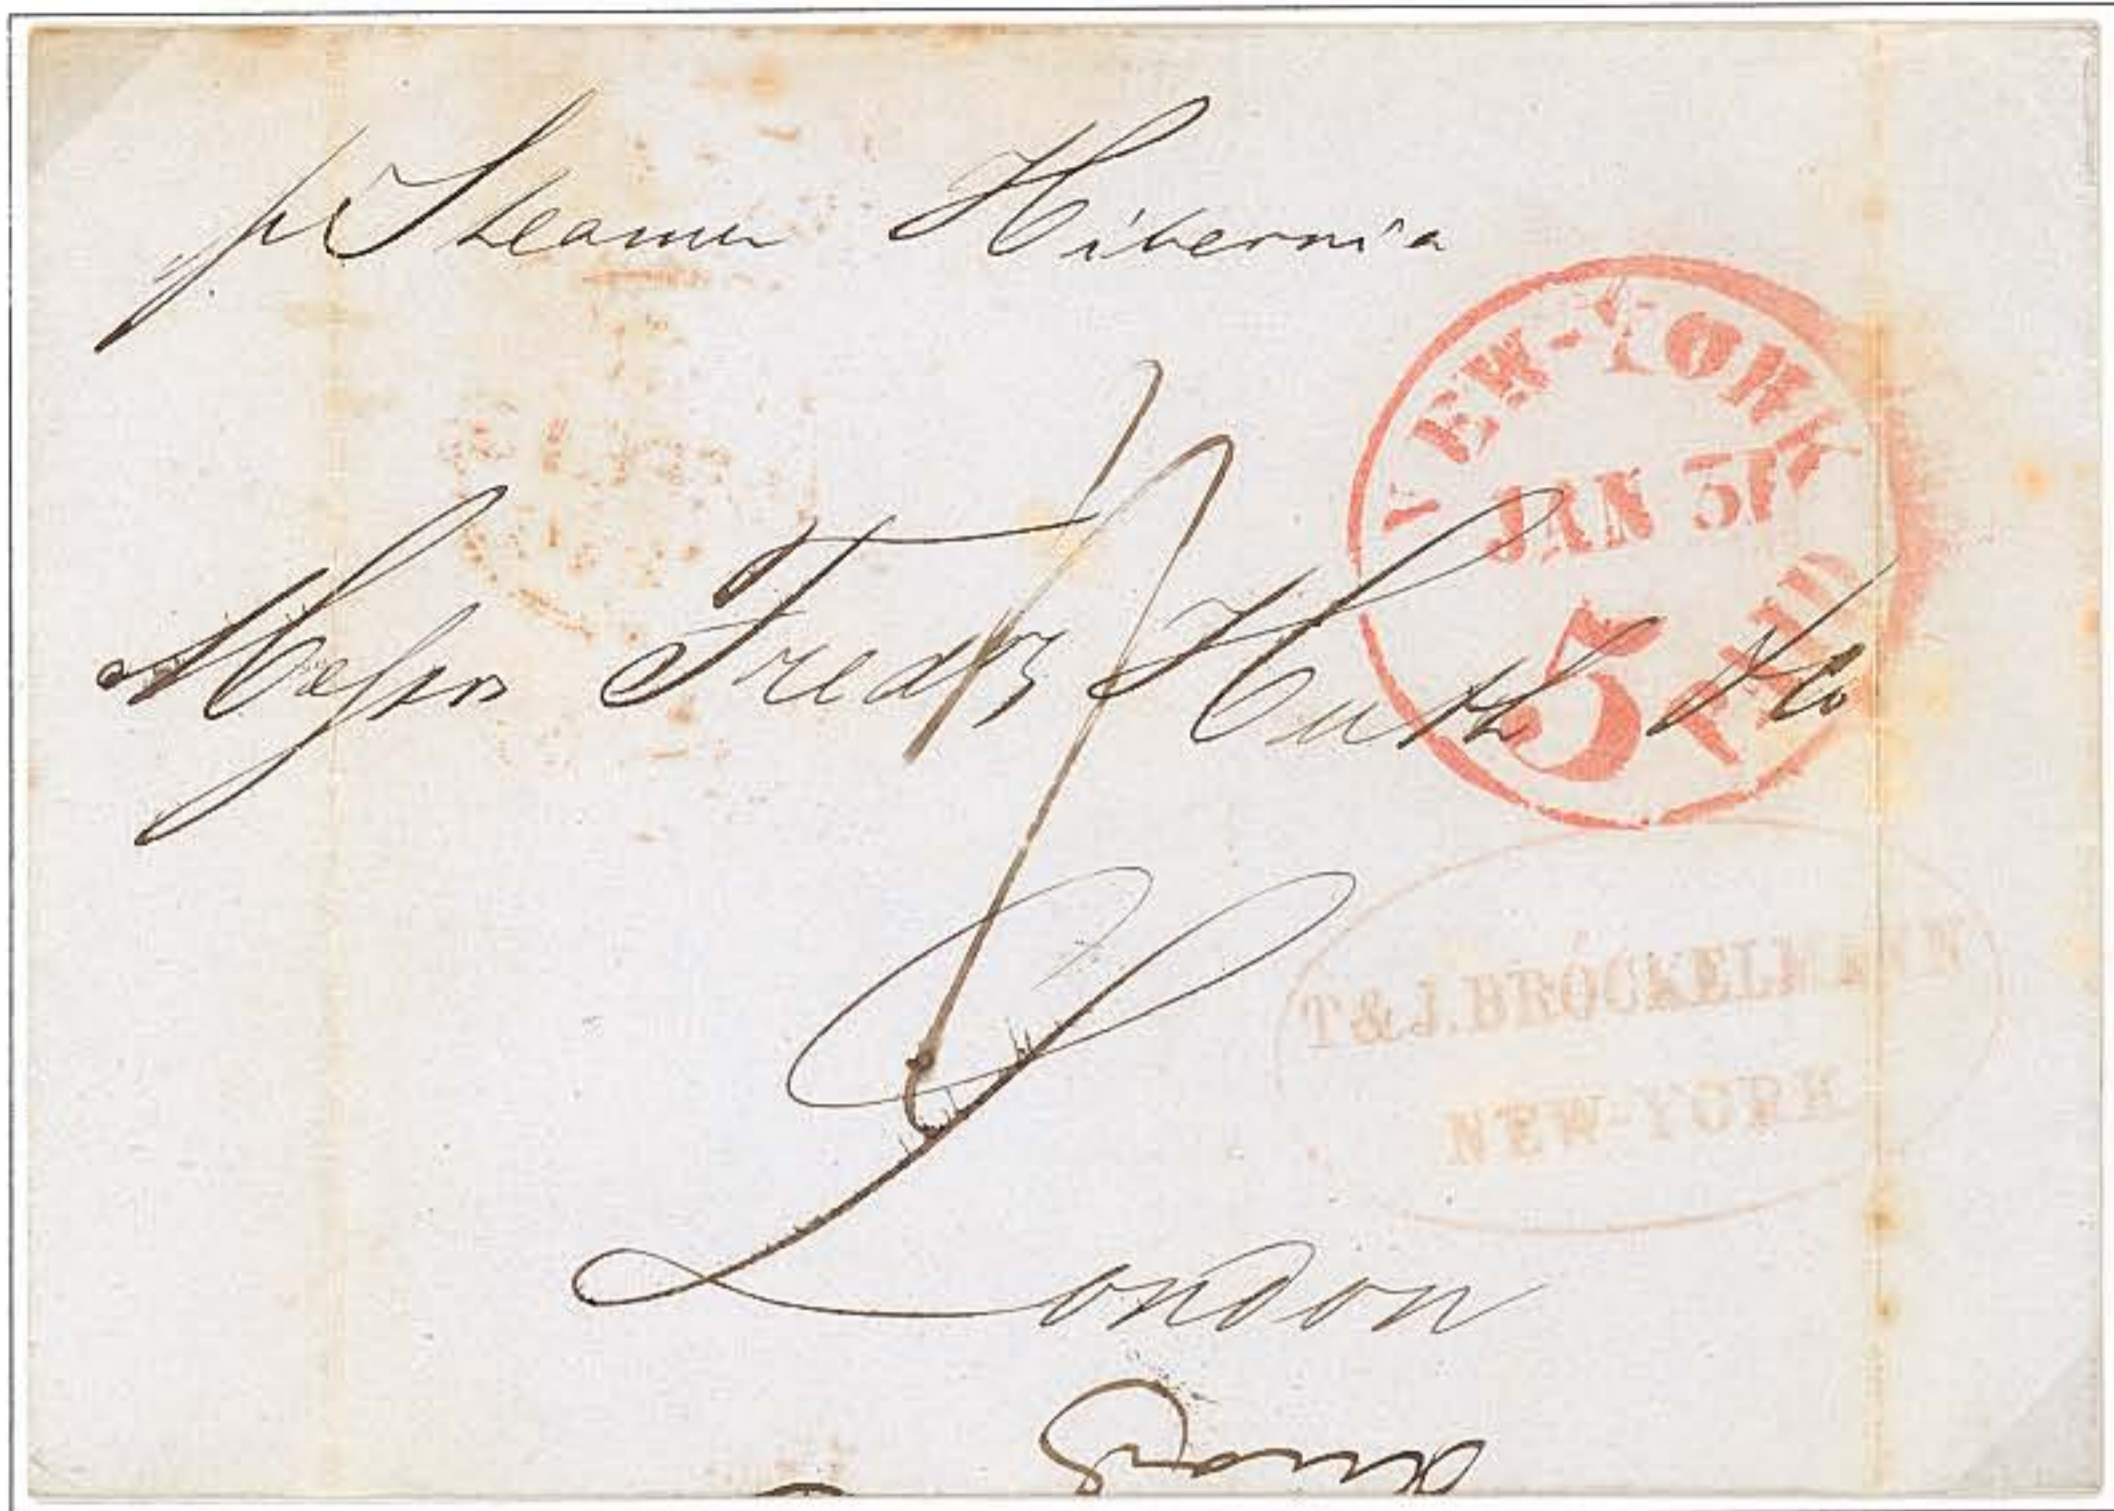 p Steamer Hibernia
NEW-YORK
JAN 31
5
PAID
Messrs Fredk Huth & Co
T & J. BROCKELMANN
NEW-YORK
London